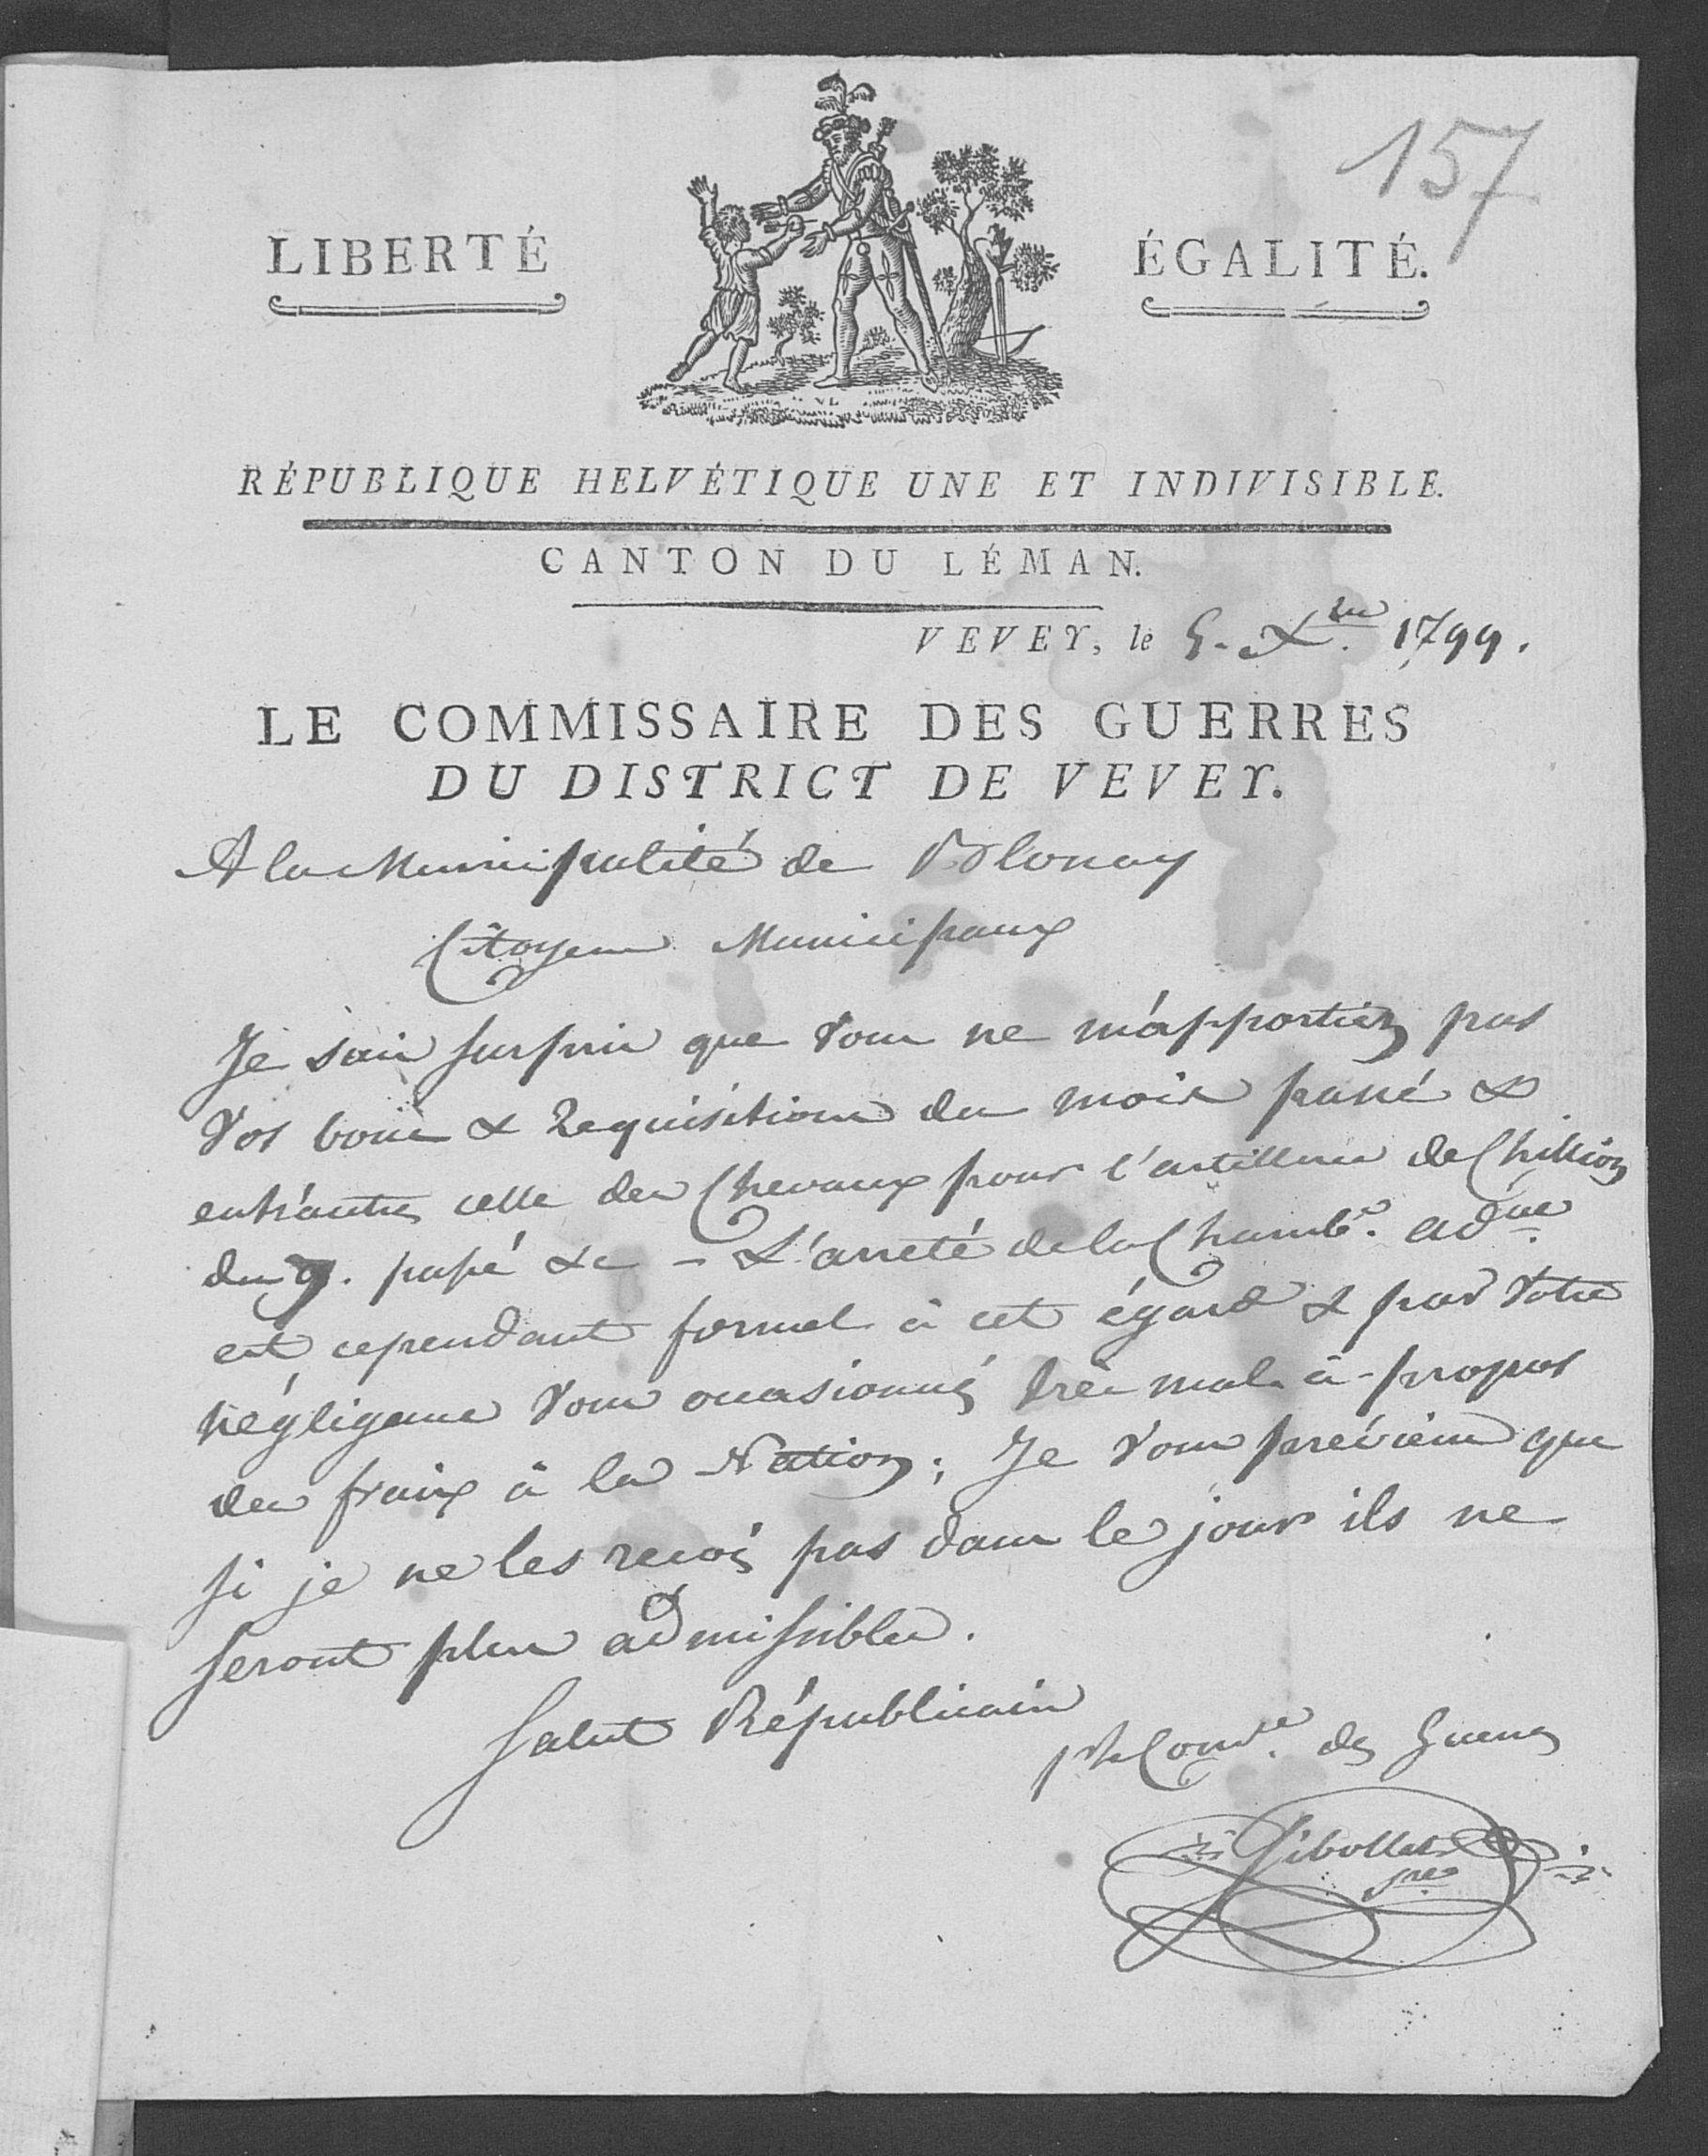 157
LIBERTÉ
ÉGALITÉ.
RÉPUBLIQUE HELVÉTIQUE UNE ET INDIVISIBLE.
CANTON DU LÉMAN.
VEVEY, le 5. Xbre. 1799.
LE COMMISSAIRE DES GUERRES
DU DISTRICT DE VEVEY.
A la Municipalité de Blonay
Citoyens Municipaux
Je suis surpris que vous ne m'apportiez pas
vos bons & Requisitions du mois passé &
entr'autres celle des Chevaux pour l'artillerie de Chillion
du 9. passé &c - L'arreté de la Chambe. adve.
est cependant formel à cet égard & par votre
négligence vous occasionnés très mal-à-propos
des fraix à la Nation; Je vous préviens que
si je ne les reçois pas dans le jour ils ne
seront plus admissibles.
Salut Républicain
pr le Comre. des Guerres
Gibollet